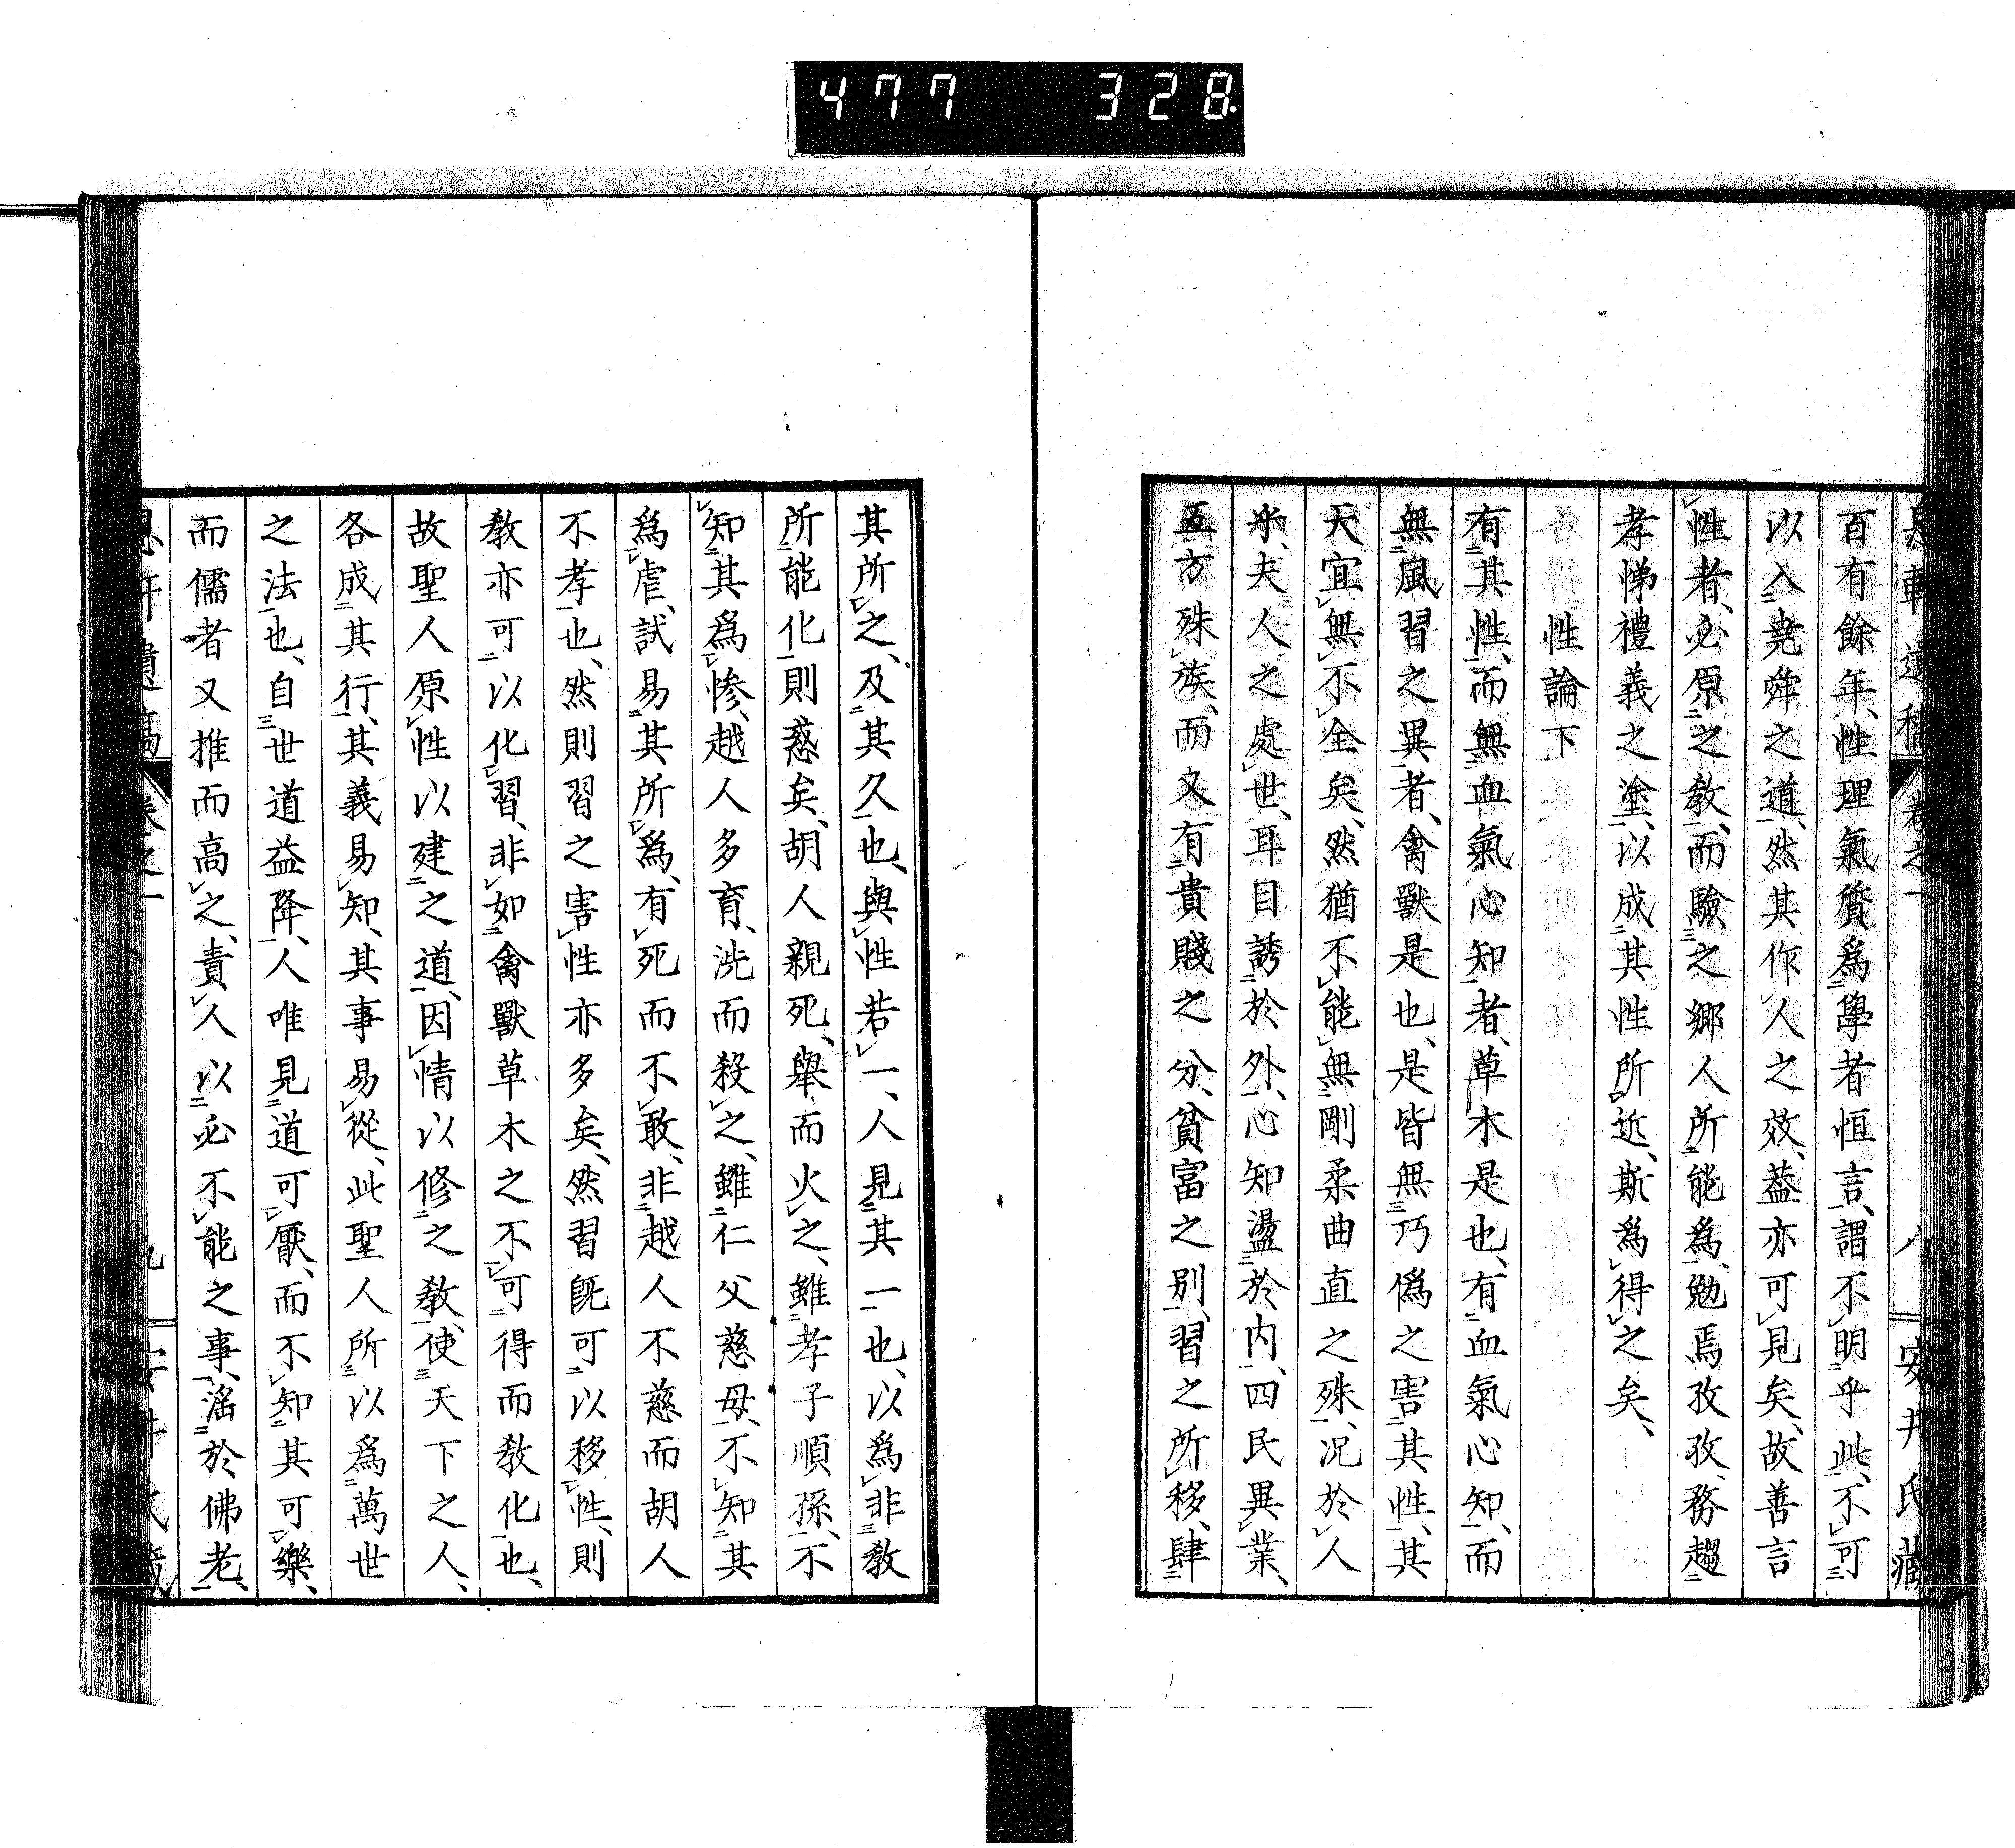 477 328
息軒遺稿 卷之一 八 安井氏藏
百有餘年、性理氣質爲學者恒言、謂不明乎此、不可
以入堯舜之道、然其作人之效、葢亦可見矣、故善言
性者、必原之敎、而驗之鄉人所能爲、勉焉孜孜、務趨
孝悌禮義之塗、以成其性所近、斯爲得之矣、
性論下
有其性、而無血氣心知者、草木是也、有血氣心知、而
無風習之異者、禽獸是也、是皆無巧僞之害其性、其
天宜無不全矣、然猶不能無剛柔曲直之殊、况於人
乎、夫人之處世、耳目誘於外、心知盪於内、四民異業、
五方殊族、而又有貴賤之分、貧富之別、習之所移、肆
其所之、及其久也、與性若一、人見其一也、以爲非敎
所能化則惑矣、胡人親死、舉而火之、雖孝子順孫、不
知其爲慘、越人多育、洗而殺之、雖仁父慈母、不知其
爲虐、試易其所爲、有死而不敢、非越人不慈而胡人
不孝也、然則習之害性亦多矣、然習旣可以移性、則
敎亦可以化習、非如禽獸草木之不可得而敎化也、
故聖人原性以建之道、因情以修之敎、使天下之人、
各成其行、其義易知、其事易從、此聖人所以爲萬世
之法也、自世道益降、人唯見道可厭、而不知其可樂、
而儒者又推而高之、責人以必不能之事、滛於佛老、
息軒遺稿 卷之一 九 安井氏藏